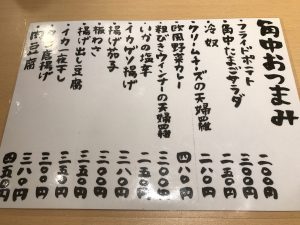 角中おつまみ
・フライドポテト 二〇〇円
・角中たまごサラダ 二五〇円
・冷奴 二〇〇円
・クリームチーズの天婦羅 二八〇円
・欧風野菜カレー 四八〇円
・粗びきウインナーの天婦羅 三〇〇円
・いかの塩辛 二五〇円
・イカゲソ揚げ 三〇〇円
・揚げ茄子 三〇〇円
・板わさ 二五〇円
・揚げ出し豆腐 三五〇円
・イカ一夜干し 三〇〇円
唐揚げ 三八〇円
肉豆腐 四五〇円